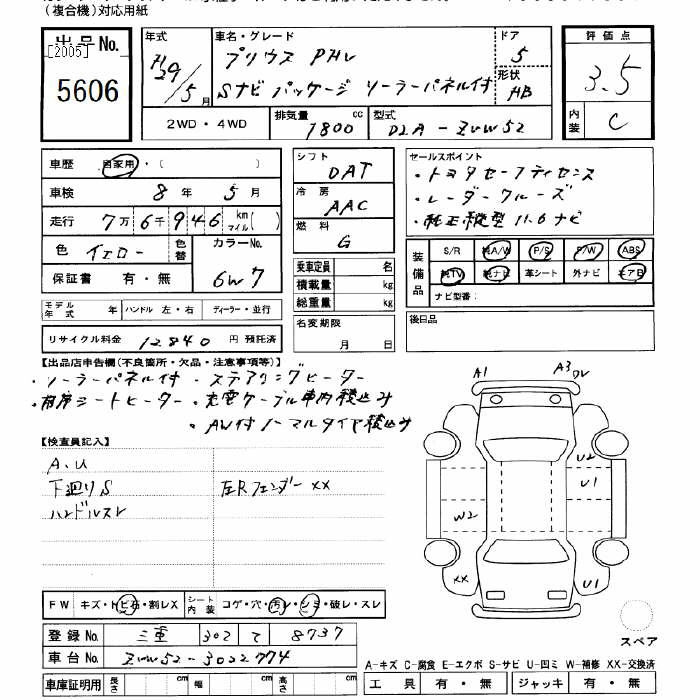 (複合機)対応用紙
出品No.
[2005]
5606
年式 H29/5月
車名・グレード プリウス PHV
Sナビパッケージ ソーラーパネル付
ドア 5
形状 HB
2WD・4WD
排気量 1800 cc
型式 DLA-ZVW52
評価点 3.5
内装 C
車歴 自家用・( )
車検 8年 5月
走行 7万6千946 km マイル( )
色 イエロー 色替 カラーNo. 6W7
保証書 有・無
モデル年式 年 ハンドル 左・右 ディーラー・並行
リサイクル料金 12840 円 預託済
シフト DAT
冷房 AAC
燃料 G
乗車定員 名
積載量 kg
総重量 kg
名変期限 月 日
セールスポイント
・トヨタセーフティセンス
・レーダークルーズ
・純正縦型11.6ナビ
装備品 S/R 純A/W P/S P/W ABS
純TV 純ナビ 革シート 外ナビ エアB
ナビ型番:
後日品
【出品店申告欄(不良箇所・欠品・注意事項等)】
・ソーラーパネル付 ・ステアリングヒーター
・前席シートヒーター ・充電ケーブル車内積込み
・AW付ノーマルタイヤ積込み
【検査員記入】
A.U
下廻りS 左Rフェンダー XX
ハンドルスレ
FW キズ・トビ石・割レX シート内装 コゲ・穴・汚レ・シミ・破レ・スレ
登録No. 三重 302 て 8737
車台No. ZVW52-3022774
車庫証明用 長さ cm 幅 cm 高さ cm
A1 A3
U2
U1
W2
XX
U1
スペア
A-キズ C-腐食 E-エクボ S-サビ U-凹ミ W-補修 XX-交換済
工具 有・無 ジャッキ 有・無